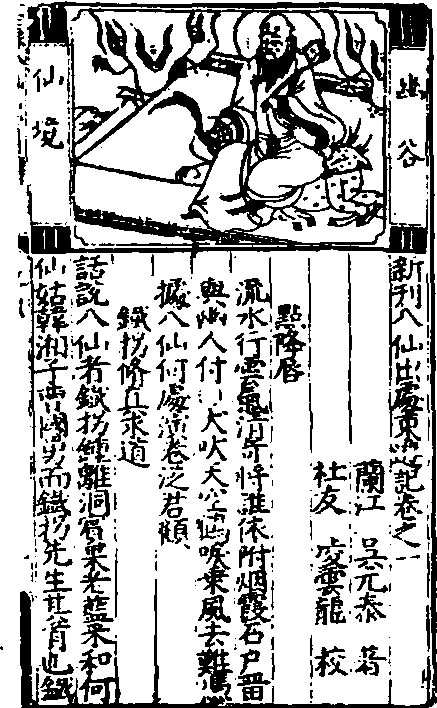 幽谷
仙境
新刊八仙出處東遊記卷之一
蘭江 吳元泰 著
社友 凌雲龍 校
點降唇
流水行雲將誰依附烟霞石戶留
與幽人付一犬吠天空鶴唳乘風去難憑
據八仙何處演卷泛君顧
鐵拐修真求道
話說八仙者鐵拐鍾離洞賓果老藍采和何
仙姑韓湘子曹國舅而鐵拐先生其首也鐵